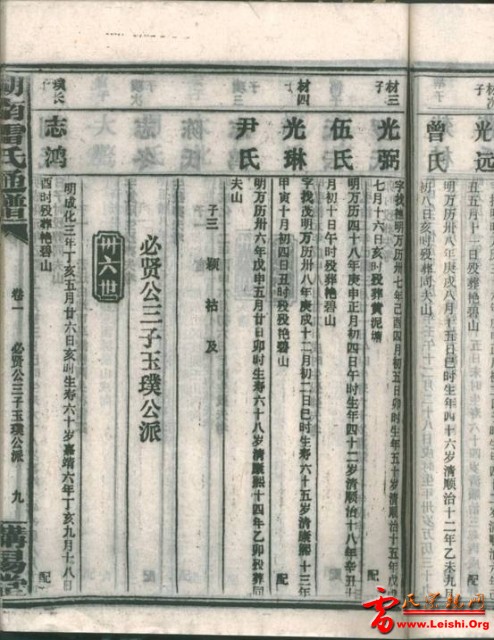 光远
曾氏
丑五月十一日殁葬艳碧山
明万历卅八年庚戌八月十五日巳时生年四十六岁清顺治十二年乙未九月
初八日亥时殁葬同夫山
材三子
光弼
字找 明万历卅七年己酉四月初五日卯时生年五十岁清顺治十五年戊
七月十六日亥时殁葬黄泥塘
配
伍氏
明万历四十八年庚申正月初四日午时生年四十二岁清顺治十八年辛丑十
月初十日午时殁葬艳碧山
材四
光琳
字找茂明万历卅八年庚戌十二月初二日巳时生寿六十五岁清康熙十三年
甲寅十月初四日丑时殁葬艳碧山
配
尹氏
明万历卅六年戊申五月廿日卯时生寿六十八岁清康熙十四年乙卯殁葬同
夫山
子三 颖 祜 及
必贤公三子玉璞公派
卅六世
璞长子
志鸿
明成化三年丁亥五月廿六日亥时生寿六十岁嘉靖六年丁亥九月十八日
酉时殁葬艳碧山
配
湖南雷氏通谱
卷一
必贤公三子玉璞公派
九
雷氏宗亲网
www.Leishi.Org